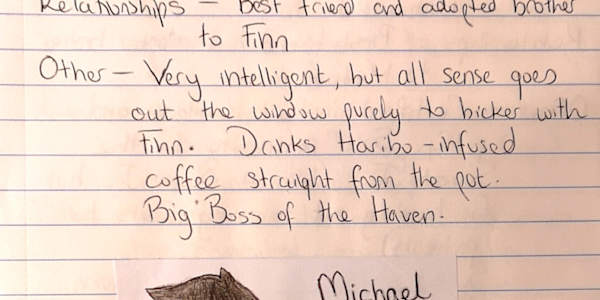 Relationships – Best friend and adopted brother
to Finn
Other – Very intelligent, but all sense goes
out the window purely to bicker with
Finn. Drinks Haribo-infused
coffee straight from the pot.
Big Boss of the Haven.
Michael